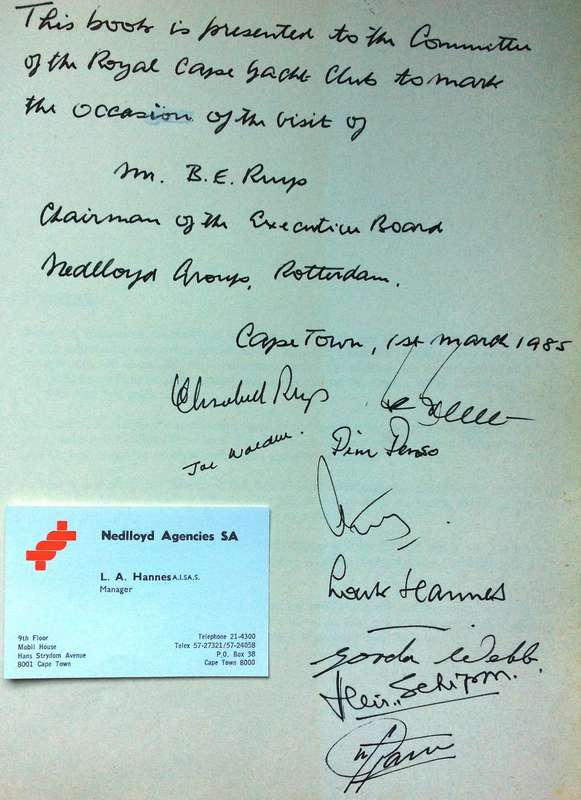 This book is presented to the Committee
of the Royal Cape Yacht Club to mark
the occasion of the visit of
Mr. B.E. Ruys
Chairman of the Executive Board
Nedlloyd Group, Rotterdam.
Cape Town, 1st March 1985
Elisabeth Ruys
Joe
Pim
Louk Hannes
Gorda Webb.
Nedlloyd Agencies SA
L. A. Hannes A.I.SA.S.
Manager
9th Floor
Mobil House
Hans Strydom Avenue
8001 Cape Town
Telephone 21-4300
Telex 57-27321/57-24058
P.O. Box 38
Cape Town 8000